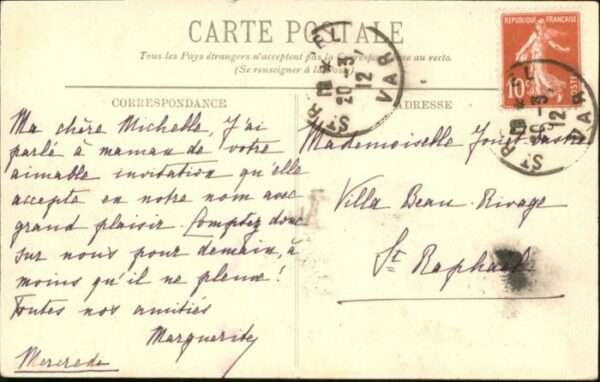 CARTE POSTALE
Tous les Pays étrangers n'acceptent pas la Correspondance au recto.
(Se renseigner à la Poste)
CORRESPONDANCE
Ma chère Michelle, J'ai
parlé à maman de votre
aimable invitation qu'elle
accepte en notre nom avec
grand plaisir. Comptez donc
sur nous pour demain, à
moins qu'il ne pleuve!
Toutes nos amitiés
Marguerite
Mercredi
ADRESSE
Mademoiselle
Villa Beau-Rivage
St Raphaël
RÉPUBLIQUE FRANÇAISE
10
POSTES
ST R EL
20 -3
12
VAR
ST R EL
20 -3
12
VAR